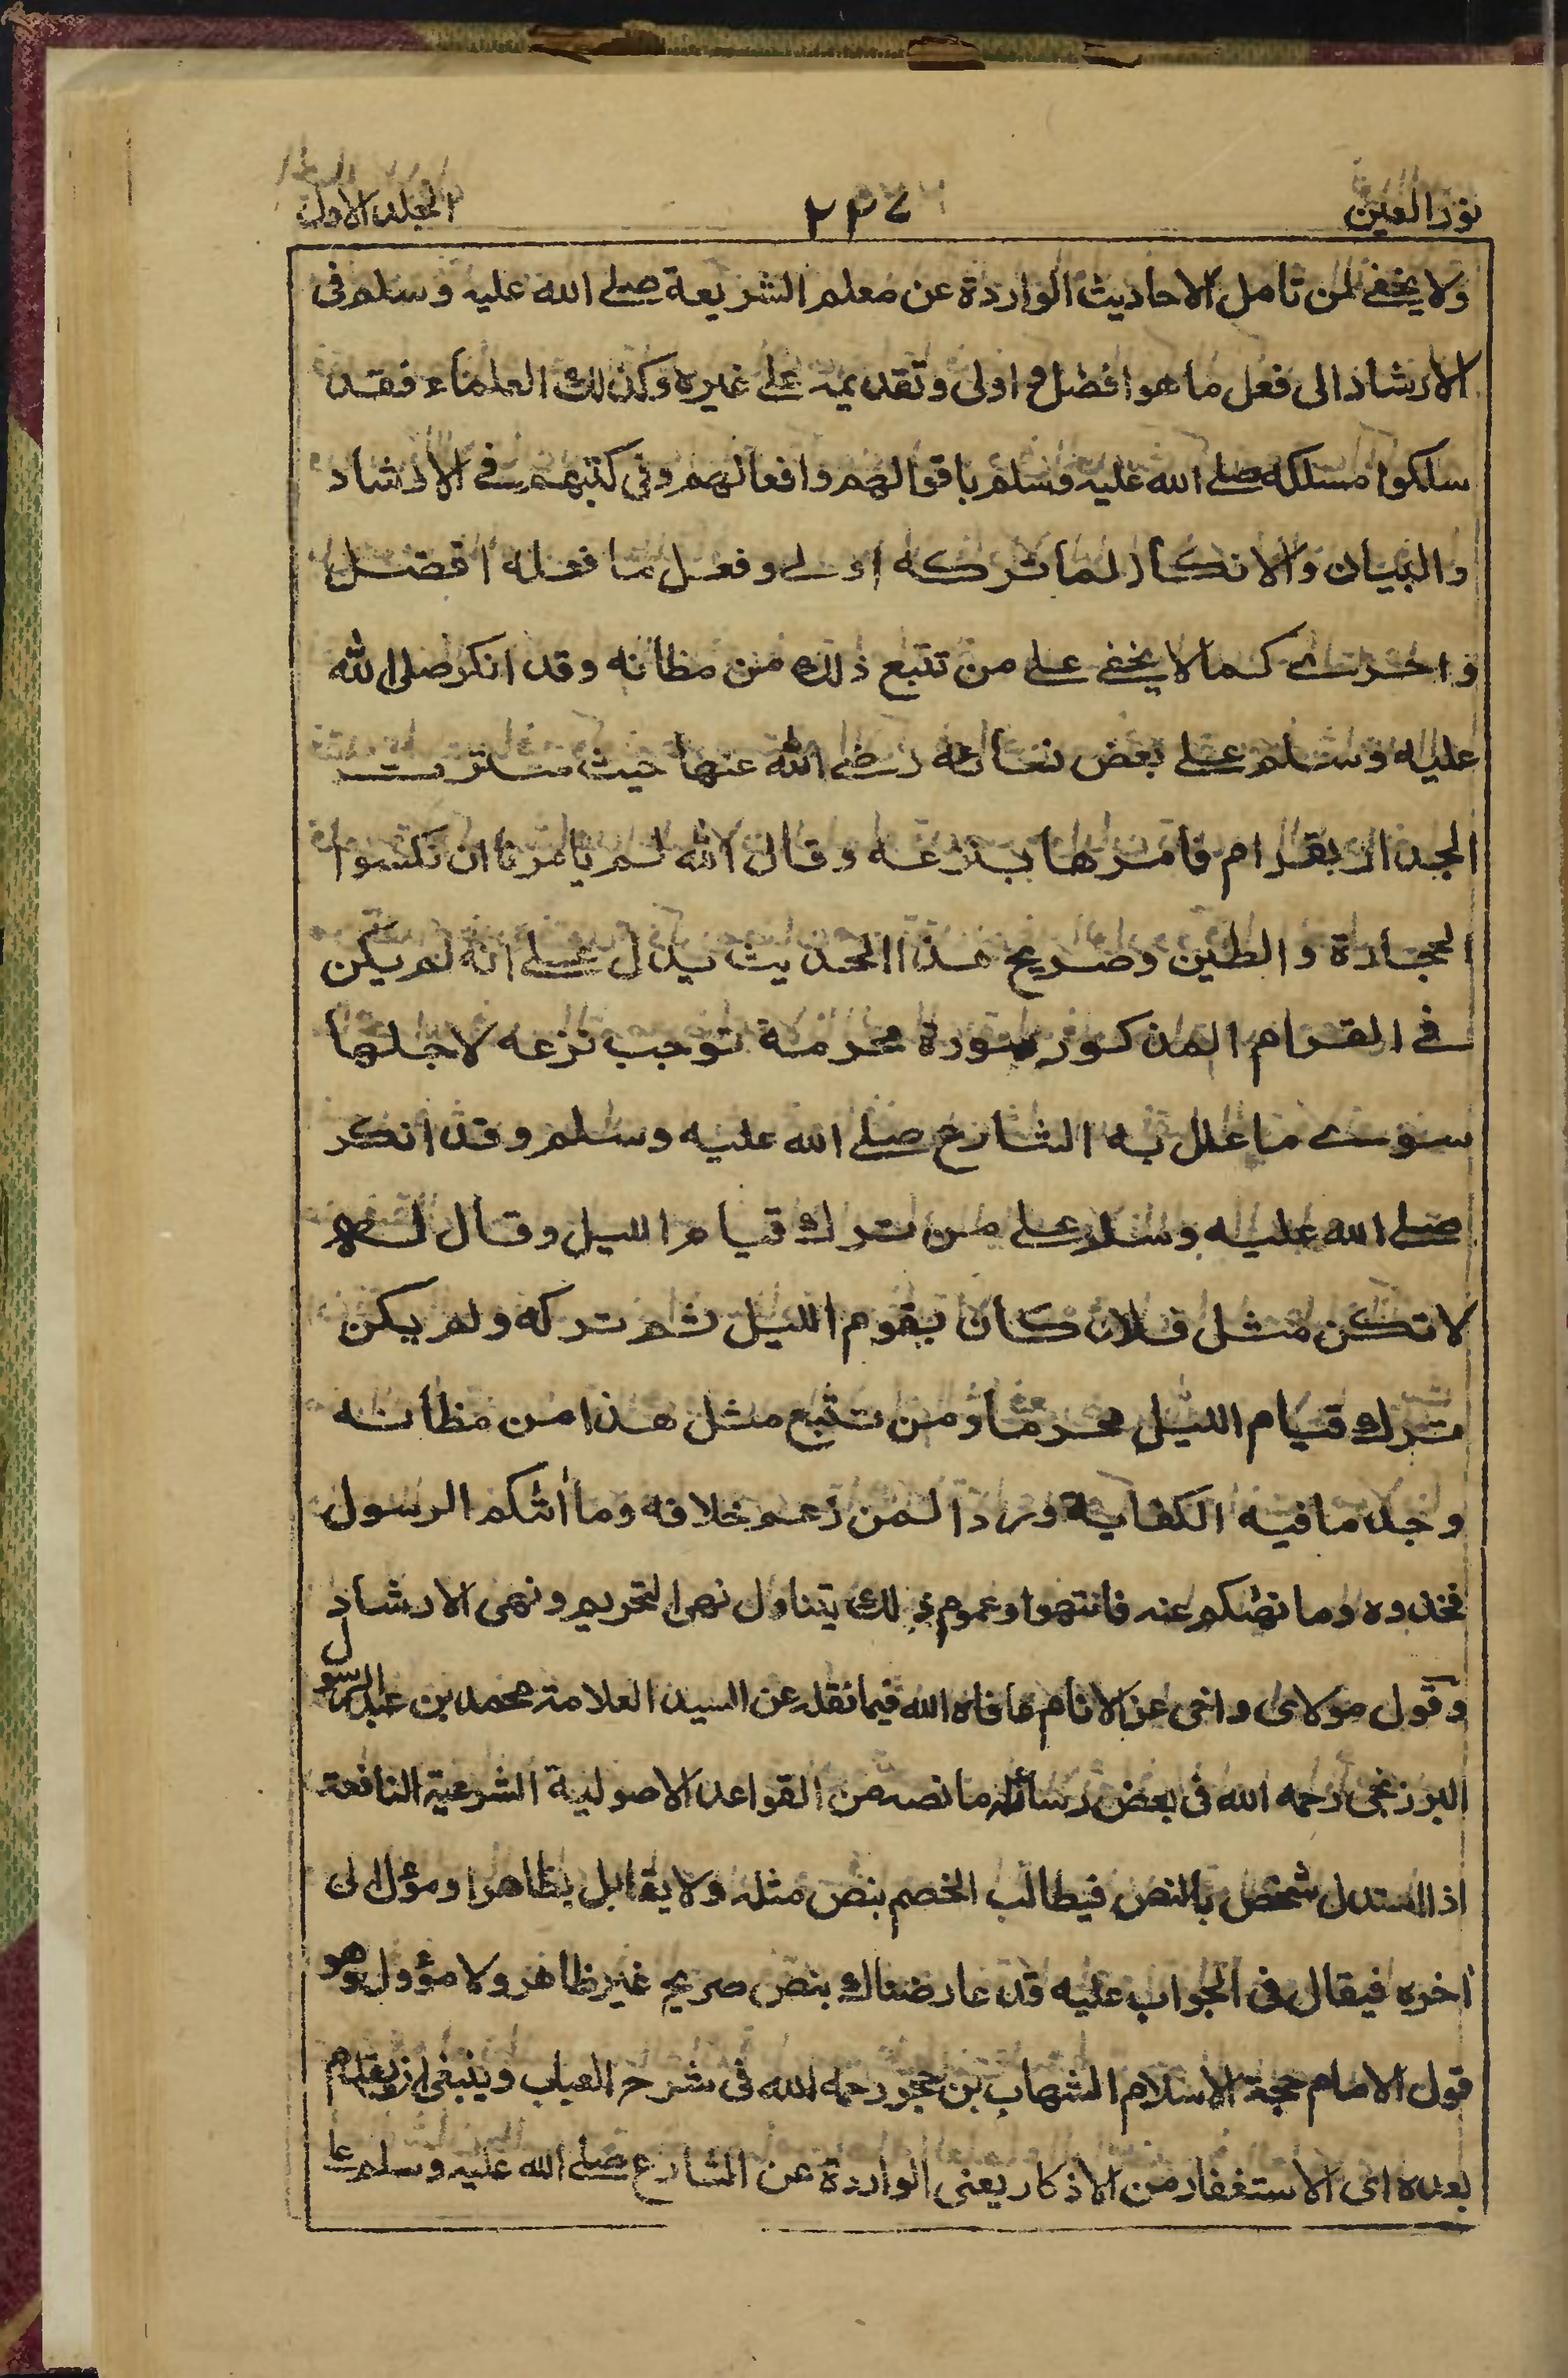 نور العين ٢٣٧ المجلد الاول
ولا يخفى لمن تامل الاحاديث الواردة عن معلم الشريعة صلے الله عليه وسلم فى
الارشاد الى فعل ما هو افضل واولى وتقديمه علے غيره وكذلك العلماء فقد
سلكوا مسلكه صلے الله عليه وسلم باقوالهم وافعالهم وفى كتبهم فے الارشاد
والبيان والانكار لما تركه اولے وفعل ما فعله افضل
واحرے كما لا يخفے علے من تتبع ذلك من مظانه وقد انكر صلى الله
عليه وسلم علے بعض نسائه رضے الله عنها حيث سترت
الجدار بقرام فامرها بنزعه وقال الله لم يامرنا ان نكسوا
الحجارة والطين وصريح هذا الحديث يدل علے انه لم يكن
فے القرام المذكور صورة محرمة توجب نزعه لاجلها
سوے ما علل به الشارع صلے الله عليه وسلم وقد انكر
صلے الله عليه وسلم علے من ترك قيام الليل وقال له
لا تكن مثل فلان كان يقوم الليل ثم تركه ولم يكن
ترك قيام الليل محرما ومن تتبع مثل هذا من مظانه
وجد ما فيه الكفاية ورادا لمن زعم خلافه وما اتٰكم الرسول
فخذوه وما نهٰكم عنه فانتهوا وعموم ذلك يتناول نهى التحريم ونهى الارشاد
وقول مولاى واخى عز الانام عافاه الله فيما نقله عن السيد العلامة محمد بن عبد الرسول
البرزنجى رحمه الله فى بعض رسائله ما نصه من القواعد الاصولية الشرعية النافعة
اذا استدل شخص بالنص فيطالب الخصم بنص مثله ولا يقابل بظاهر او مؤل الى
اخره فيقال فى الجواب عليه قد عارضناك بنص صريح غير ظاهر ولا مؤول وهو
قول الامام حجة الاسلام الشهاب بن حجر رحمه الله فى شرح العباب وينبغى ان يقدم
بعده اى الاستغفار من الاذكار يعنى الواردة عن الشارع صلے الله عليه وسلم ما